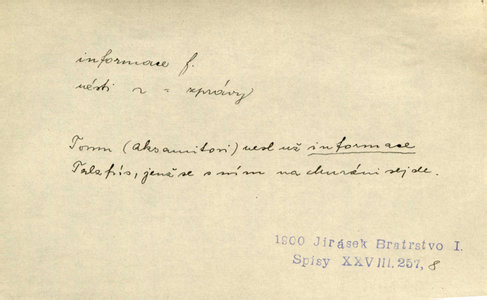 informace f.
nésti ~ = zprávy
Tomu (Aksamitovi) nesl už informace
Talafús, jenž se s ním na churáni sejde.
1900 Jirásek Bratrstvo I.
Spisy XXVIII. 257, 8